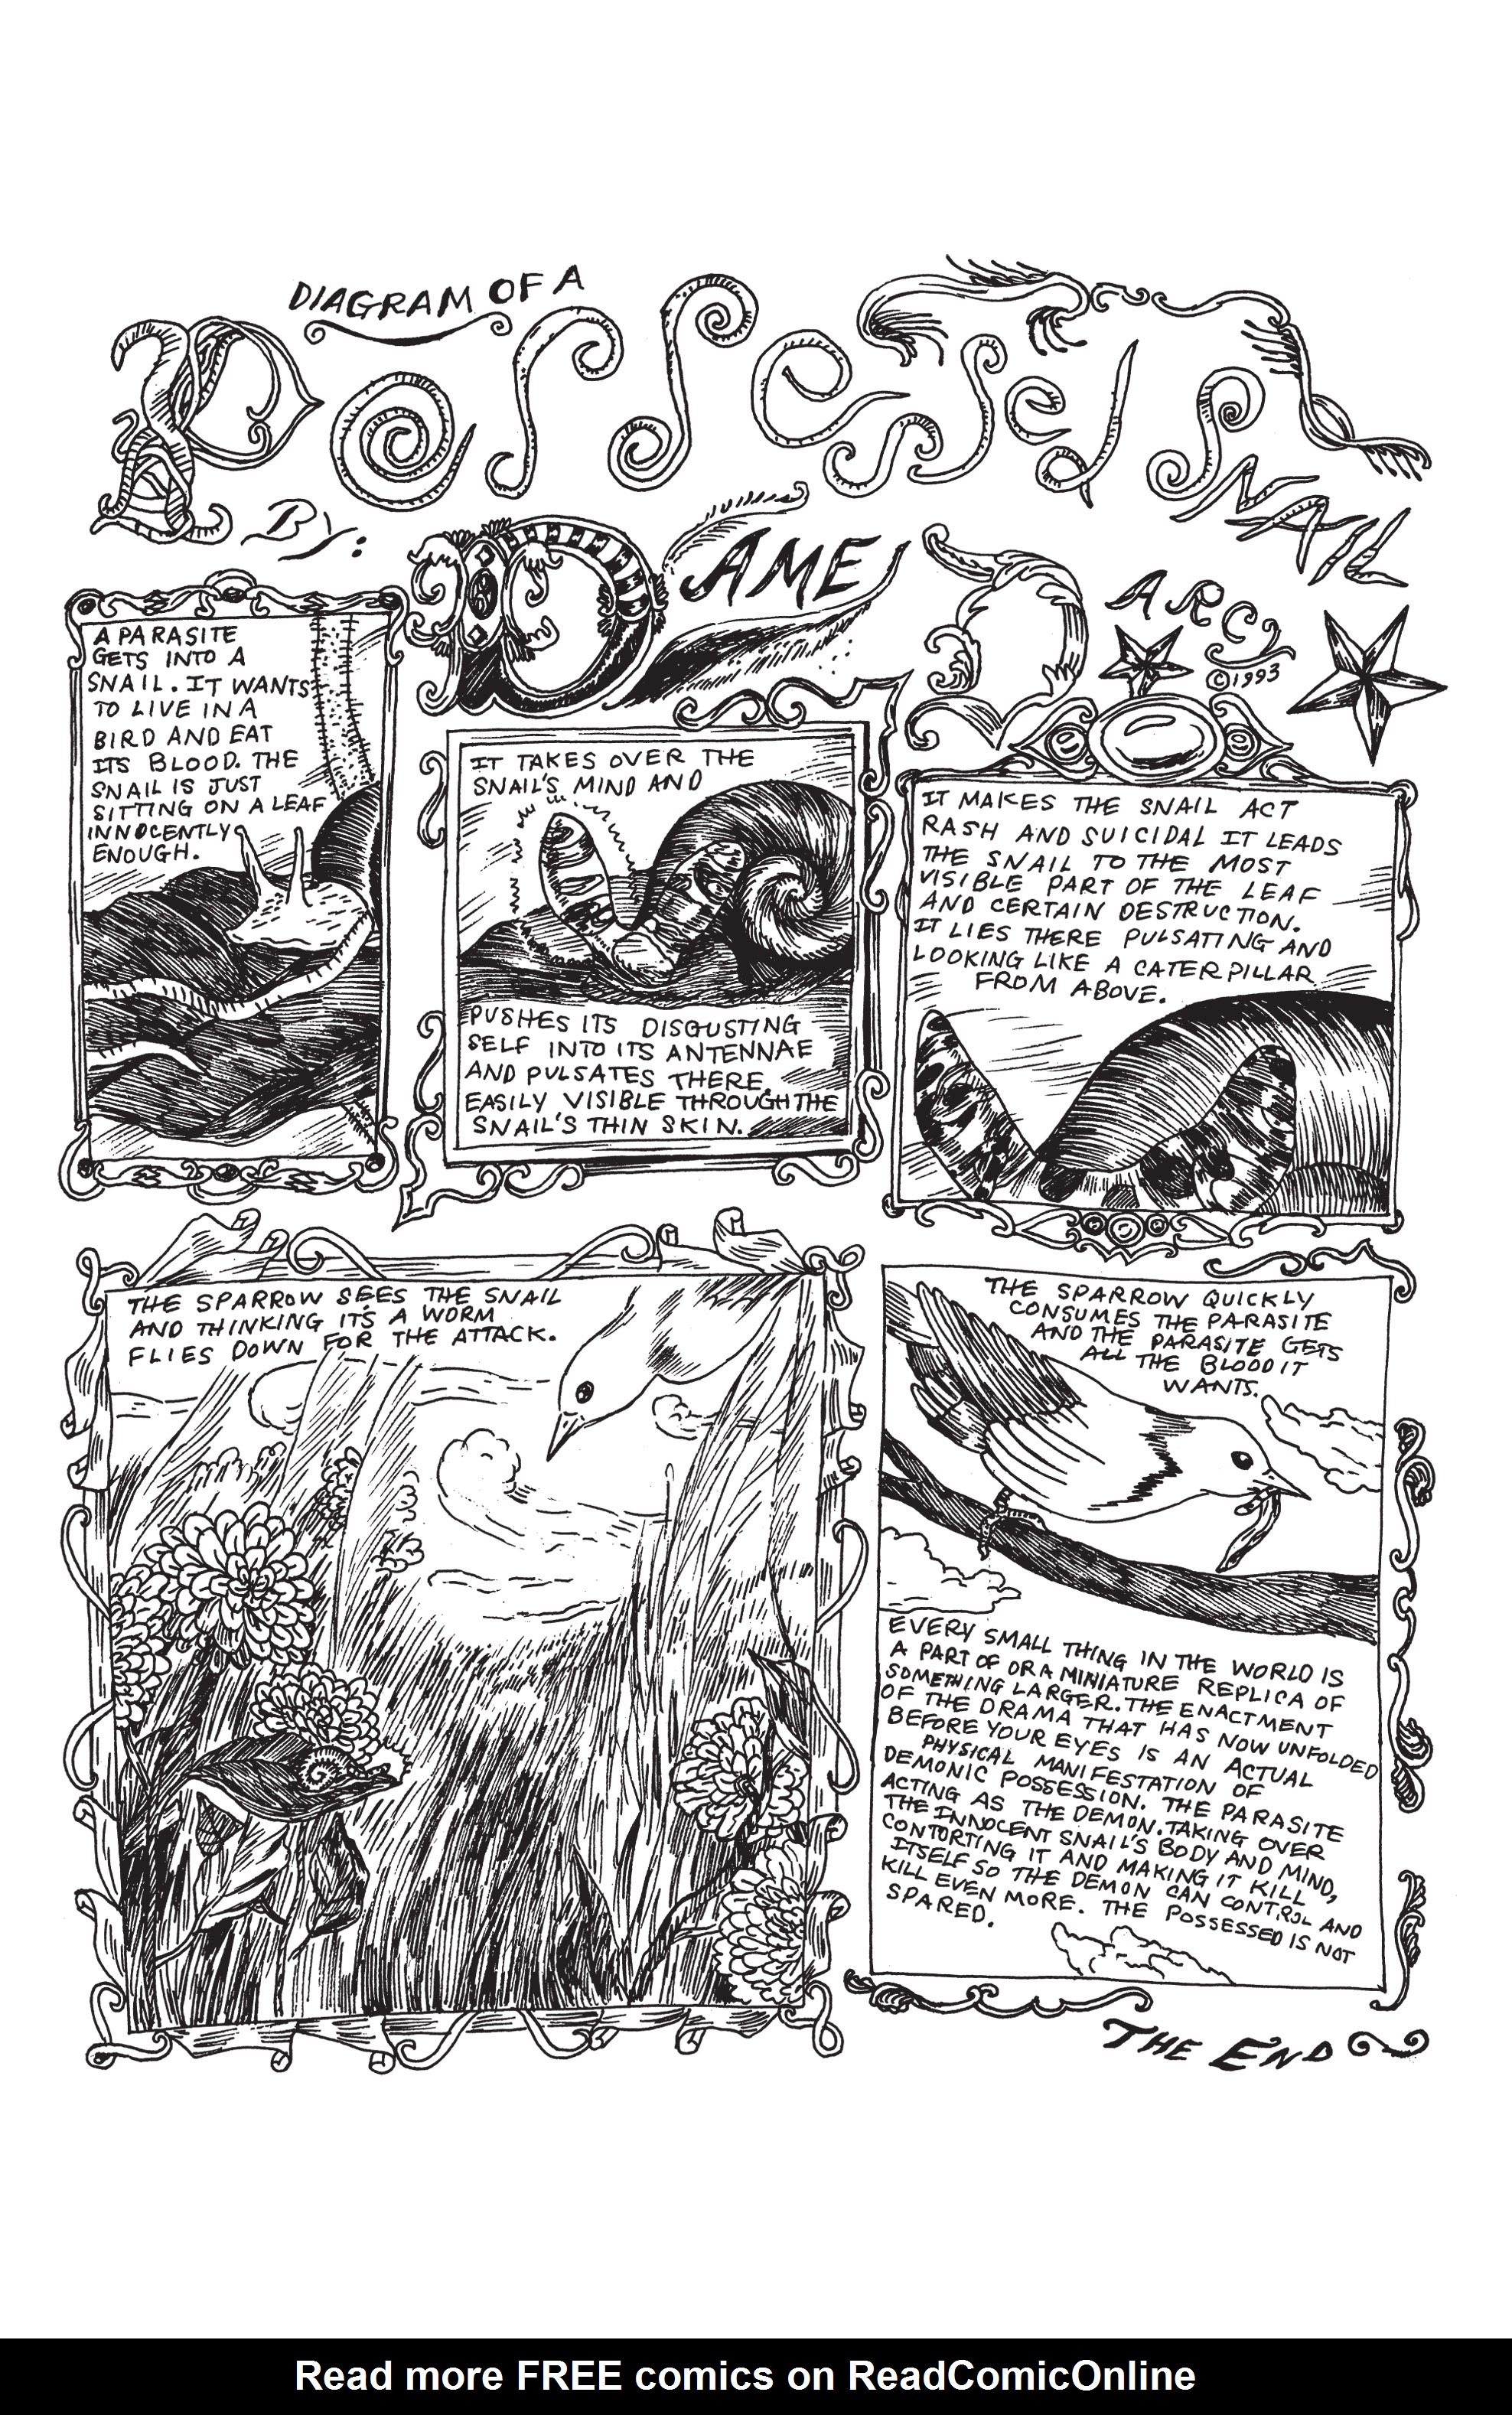 DIAGRAM OF A
POSSESSED
SNAIL
BY:
DAME
DARCY
©1993
A PARASITE
GETS INTO A
SNAIL. IT WANTS
TO LIVE IN A
BIRD AND EAT
ITS BLOOD. THE
SNAIL IS JUST
SITTING ON A LEAF
INNOCENTLY
ENOUGH.
IT TAKES OVER THE
SNAIL'S MIND AND
PUSHES ITS DISGUSTING
SELF INTO ITS ANTENNAE
AND PULSATES THERE.
EASILY VISIBLE THROUGH THE
SNAIL'S THIN SKIN.
IT MAKES THE SNAIL ACT
RASH AND SUICIDAL IT LEADS
THE SNAIL TO THE MOST
VISIBLE PART OF THE LEAF
AND CERTAIN DESTRUCTION.
IT LIES THERE PULSATING AND
LOOKING LIKE A CATERPILLAR
FROM ABOVE.
THE SPARROW SEES THE SNAIL
AND THINKING IT'S A WORM
FLIES DOWN FOR THE ATTACK.
THE SPARROW QUICKLY
CONSUMES THE PARASITE
AND THE PARASITE GETS
ALL THE BLOOD IT
WANTS.
EVERY SMALL THING IN THE WORLD IS
A PART OF OR A MINIATURE REPLICA OF
SOMETHING LARGER. THE ENACTMENT
OF THE DRAMA THAT HAS NOW UNFOLDED
BEFORE YOUR EYES IS AN ACTUAL
PHYSICAL MANIFESTATION OF
DEMONIC POSSESSION. THE PARASITE
ACTING AS THE DEMON. TAKING OVER
THE INNOCENT SNAIL'S BODY AND MIND,
CONTORTING IT AND MAKING IT KILL
ITSELF SO THE DEMON CAN CONTROL AND
KILL EVEN MORE. THE POSSESSED IS NOT
SPARED.
THE END
Read more FREE comics on ReadComicOnline